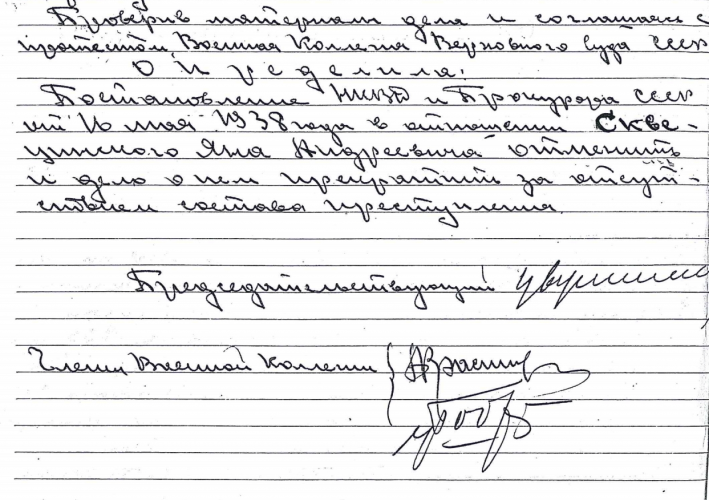 Проверив материалы дела и соглашаясь с
протестом, Военная Коллегия Верховного Суда СССР
Определила:
Постановление НКВД и Прокурора СССР
от 16 мая 1938 года в отношении Скве-
цинского Яна Андреевича отменить
и дело о нем прекратить за отсут-
ствием состава преступления.
Председательствующий
Члены Военной Коллегии